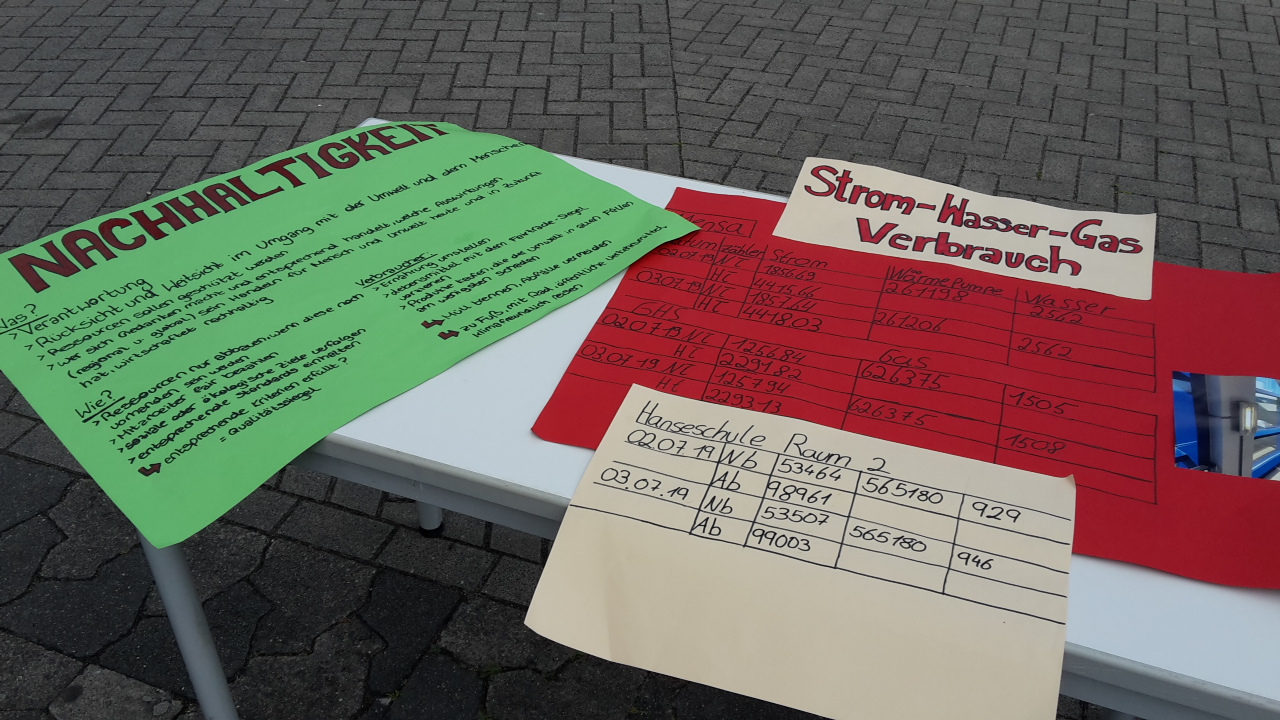 NACHHALTIGKEIT
Was?
> Verantwortung
> Rücksicht und Weitsicht im Umgang mit der Umwelt und dem Menschen
> Ressourcen sollen geschützt werden
> wer sich Gedanken macht und entsprechend handelt, welche Auswirkungen
(regional u. global) sein Handeln für Mensch und Umwelt heute und in Zukunft
hat, wirtschaftet nachhaltig
Wie?
> Ressourcen nur abbauen, wenn diese nachwachsen
> Mitarbeiter fair bezahlen
> soziale oder ökologische Ziele verfolgen
> entsprechende Standards einhalten
entsprechende Kriterien erfüllt?
= Qualitätssiegel
Verbraucher
> Ernährung umstellen
> Lebensmittel mit dem Fairtrade-Siegel
> Produkte kaufen, die der Umwelt in allen Fällen
am wenigsten schaden
Müll trennen, Abfälle vermeiden
zu Fuß, mit Rad, öffentliche Verkehrsmittel
Strom-Wasser-Gas
Verbrauch
Mensa
Datum Zähler Strom Wärmepumpe Wasser
02.07.19 NT 185669 261198 2562
HT 441566
03.07.19 NT 185764 261206 2562
HT 441803
GHS Gas
02.07.19 NT 125684 626375 1505
HT 229182
03.07.19 NT 125794 626375 1508
HT 229313
Hanseschule Raum 2
02.07.19 Nb 53464 565180 929
Ab 98961
03.07.19 Nb 53507 565180 946
Ab 99003